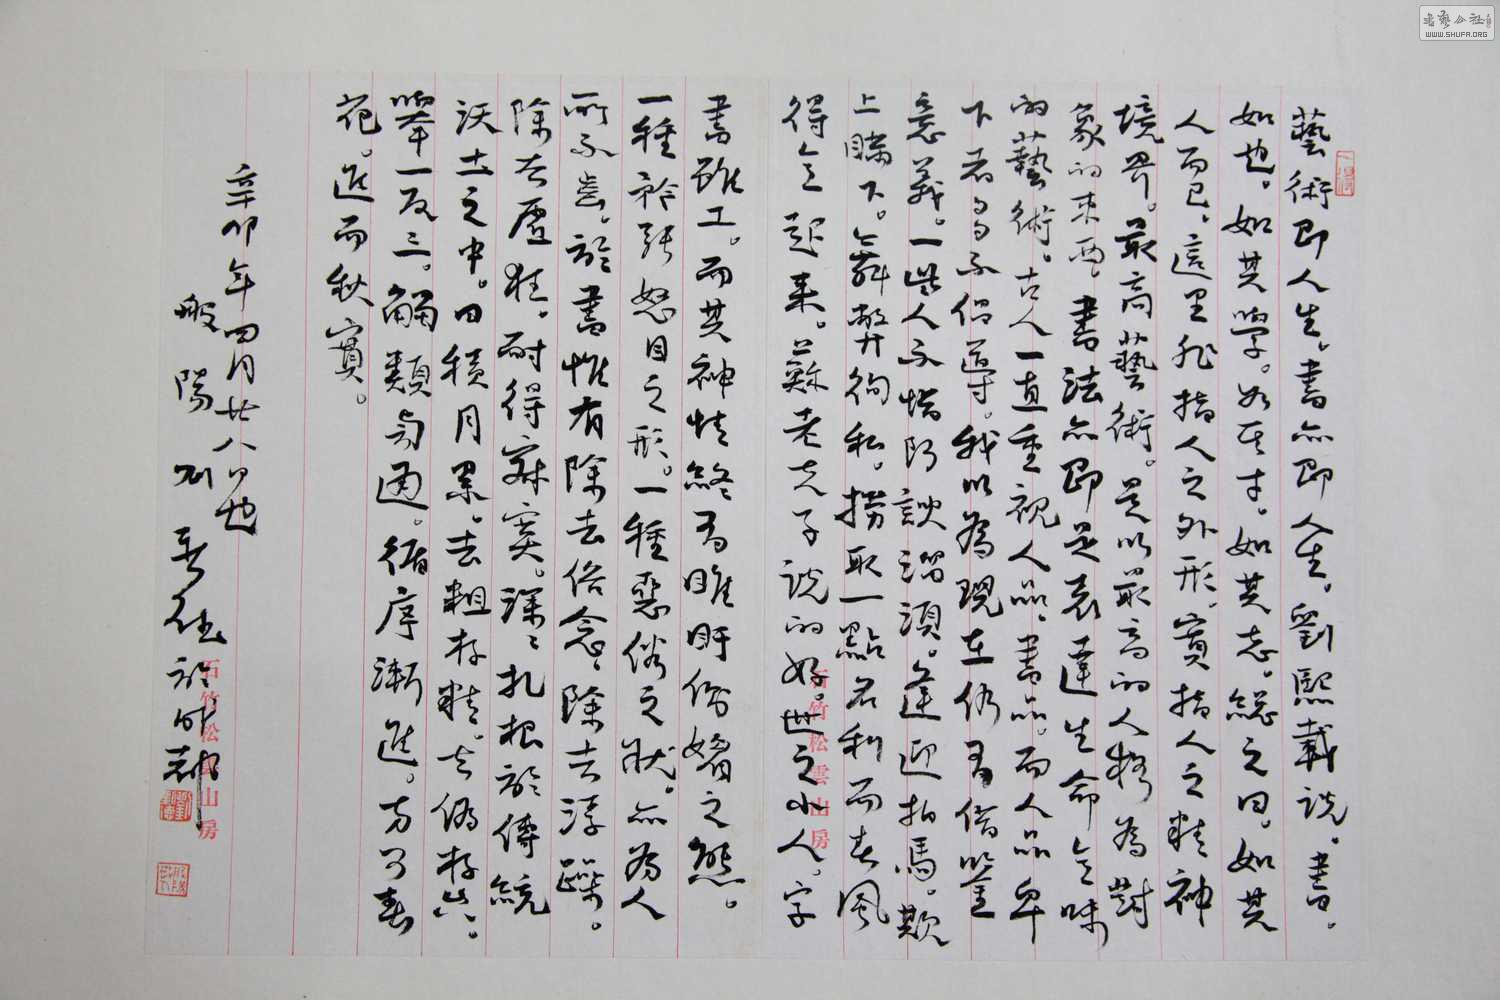 藝術即人生,書亦即人生。劉熙載說。書。
如也。如其學。如其才。如其志。總之曰。如其
人而已,這里非指人之外形,實指人之精神
境界。最高藝術。是以最高的人格為對
象的東西,書法亦即是表達生命意味
的藝術。古人一直重視人品,書品。而人品卑
下者多不倡導。我以為現在仍有借鑒
意義。一些人不惜阿諛諂須。逢迎拍馬。欺
上瞞下。舞弊徇私。撈取一點名利而春風
得意起來。蘇老夫子說的好。世之小人。字
書雖工。而其神情終有睢盱側媚之態。
一種矜張怒目之形。一種惡俗之狀。亦為人
所不齒。於書惟有除去俗念,除去浮躁。
除去虛狂。耐得寂寞。深深扎根於傳統
沃土之中。日積月累。去粗存精。去偽存真。
舉一反三。觸類旁通。循序漸進。方可春
花。進而秋實。
辛卯年四月廿八日也
般陽 劉
石竹松雲山房
石竹松雲山房
WWW.SHUFA.ORG